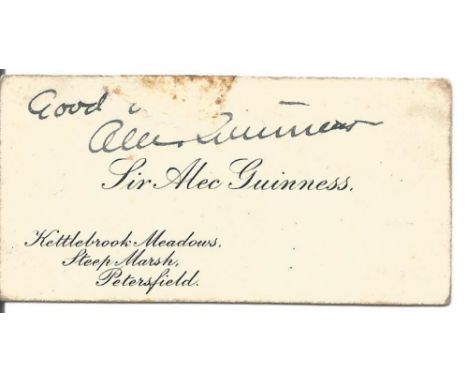 Good
Alec Guinness
Sir Alec Guinness.
Kettlebrook Meadows.
Steep Marsh,
Petersfield.